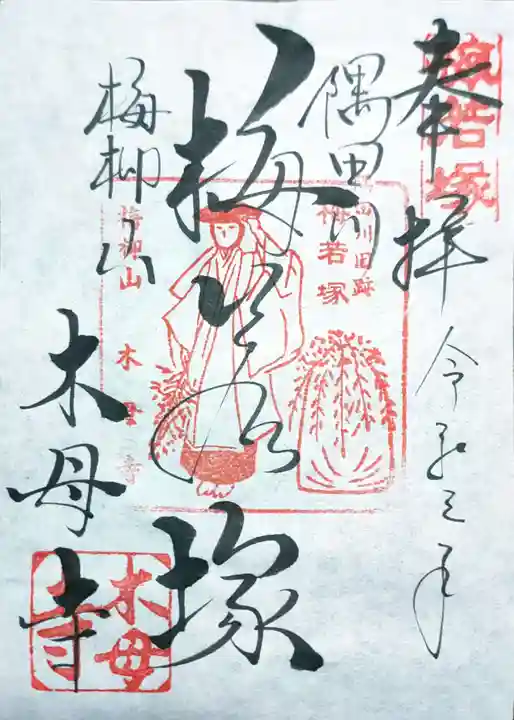 奉拝
令和三年
梅若塚
隅田川
梅若塚
隅田川旧跡
梅若塚
梅柳山
木母寺
梅柳山
木母寺
木母寺